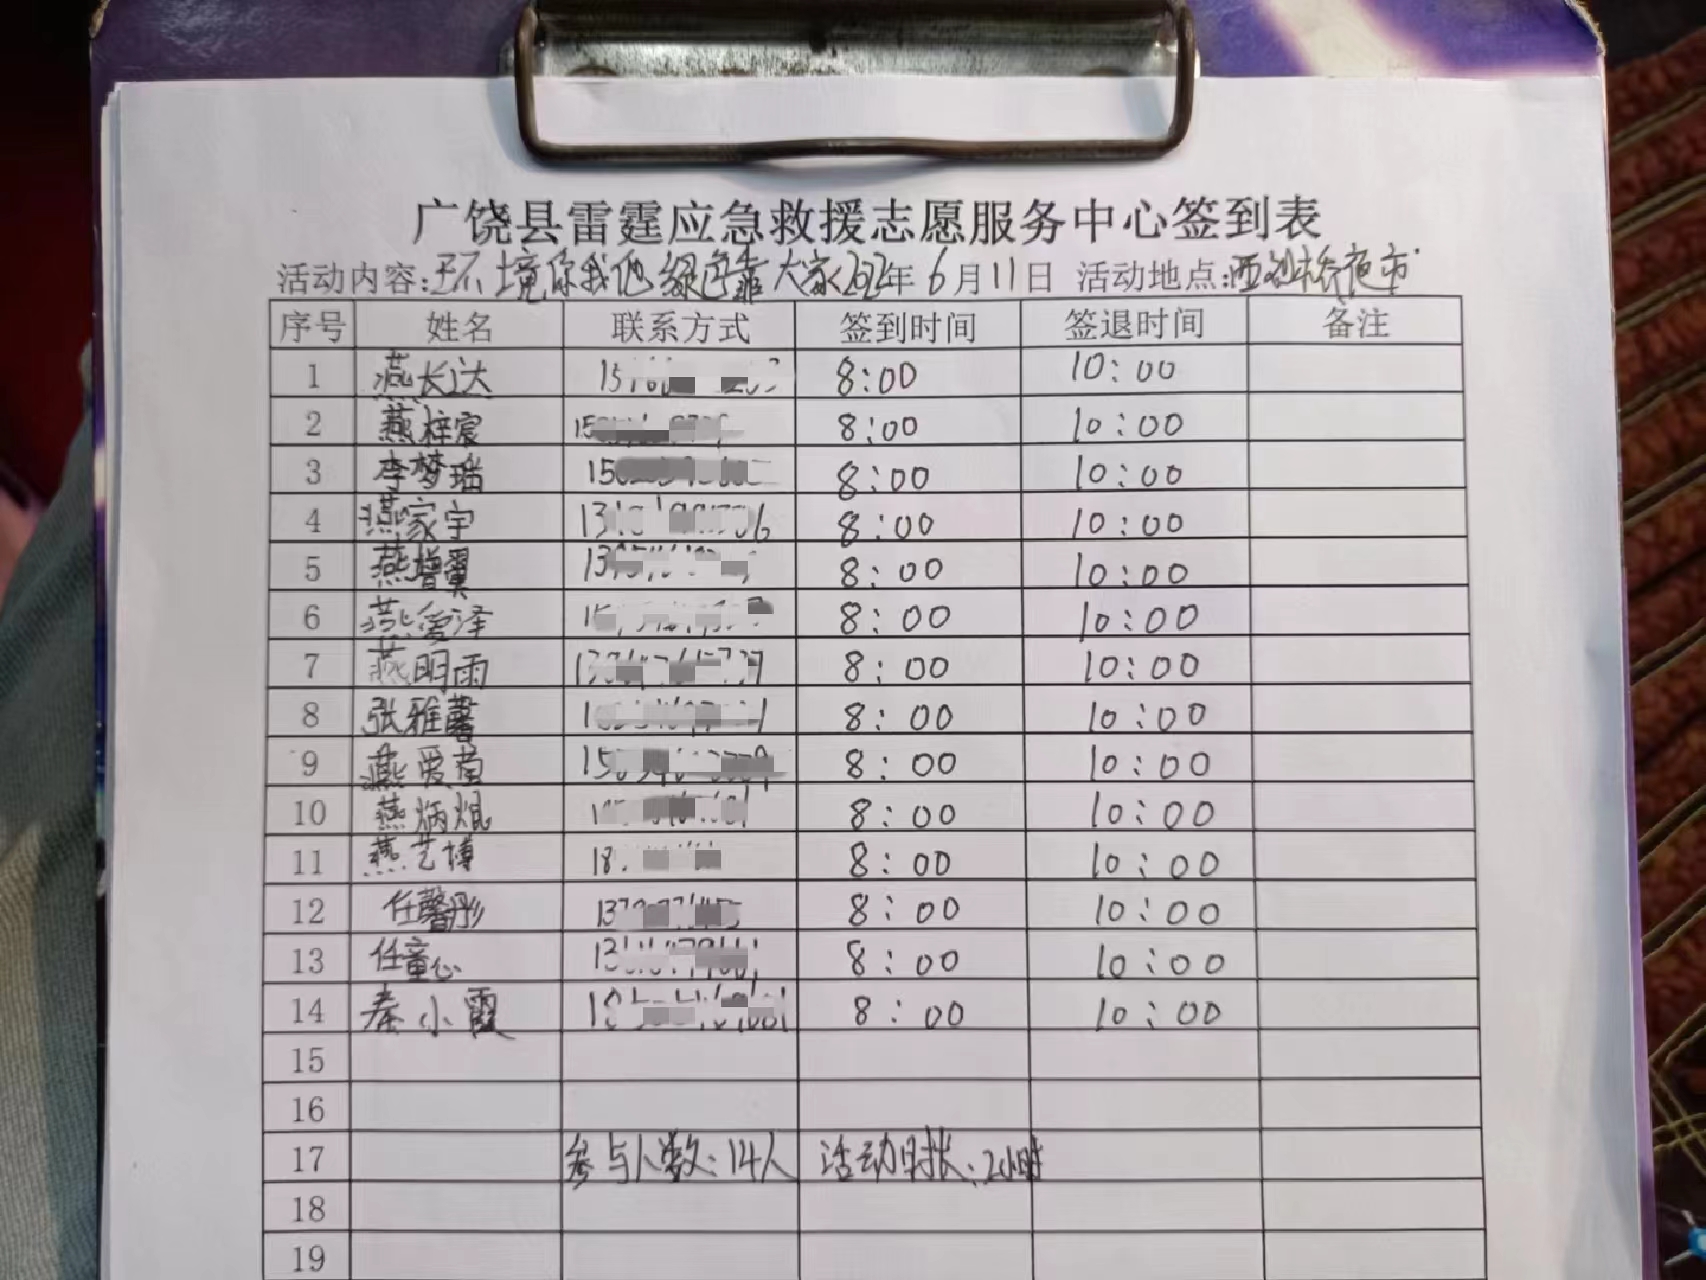 广饶县雷霆应急救援志愿服务中心签到表
活动内容:环境你我他 绿色靠大家 2022年 6月11日 活动地点:西刘桥夜市
序号 姓名 联系方式 签到时间 签退时间 备注
1 燕长达 8:00 10:00
2 燕梓宸 8:00 10:00
3 李梦瑶 8:00 10:00
4 燕家宇 8:00 10:00
5 燕增翼 8:00 10:00
6 燕爱泽 8:00 10:00
7 燕明雨 8:00 10:00
8 张雅馨 8:00 10:00
9 燕爱茵 8:00 10:00
10 燕炳焜 8:00 10:00
11 燕艺博 8:00 10:00
12 任馨彤 8:00 10:00
13 任童心 8:00 10:00
14 秦小霞 8:00 10:00
15
16
17 参与人数:14人 活动时长:2小时
18
19